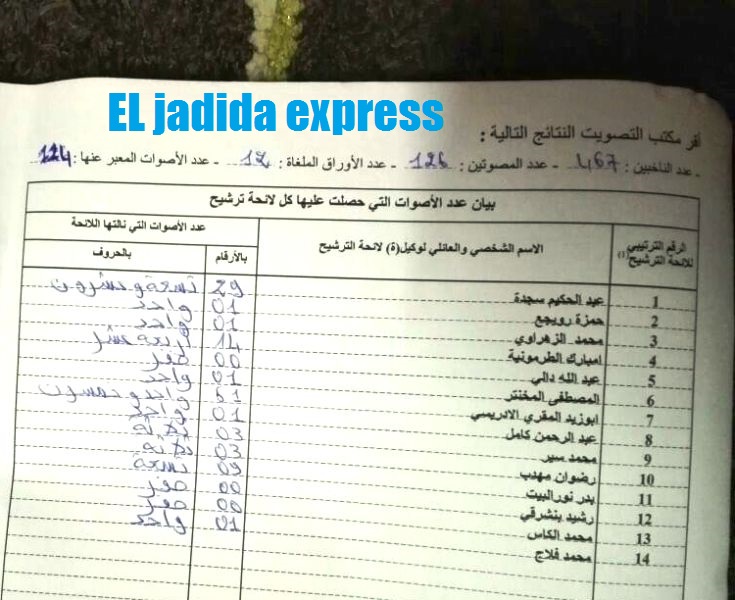 EL jadida express
أقر مكتب التصويت النتائج التالية :
ـ عدد الناخبين : 467 ـ عدد المصوتين : 126 ـ عدد الأوراق الملغاة : 12 ـ عدد الأصوات المعبر عنها :
بيان عدد الأصوات التي حصلت عليها كل لائحة ترشيح
الرقم الترتيبي للائحة الترشيح(1) الاسم الشخصي والعائلي لوكيل(ة) لائحة الترشيح عدد الأصوات التي نالتها اللائحة
بالأرقام بالحروف
1 عبد الحكيم سجدة 29 تسعة وعشرون
2 حمزة رويجع 01 واحد
3 محمد الزهراوي 01 واحد
4 امبارك الطرمونية 14 أربعة عشر
5 عبد الله دالي 00 صفر
6 المصطفى المخنتر 01 واحد
7 ابوزيد المقري الادريسي 51 واحد وخمسون
8 عبد الرحمن كامل 01 واحد
9 محمد سير 03 ثلاثة
10 رضوان مهدب 03 ثلاثة
11 بدر نورالبيت 09 تسعة
12 رشيد بنشرقي 00 صفر
13 محمد الكاس 00 صفر
14 محمد فلاج 01 واحد